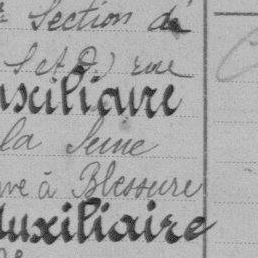 Section de
S et O.) rue
uxiliaire
la Seine
ve à Blessure
Auxiliaire